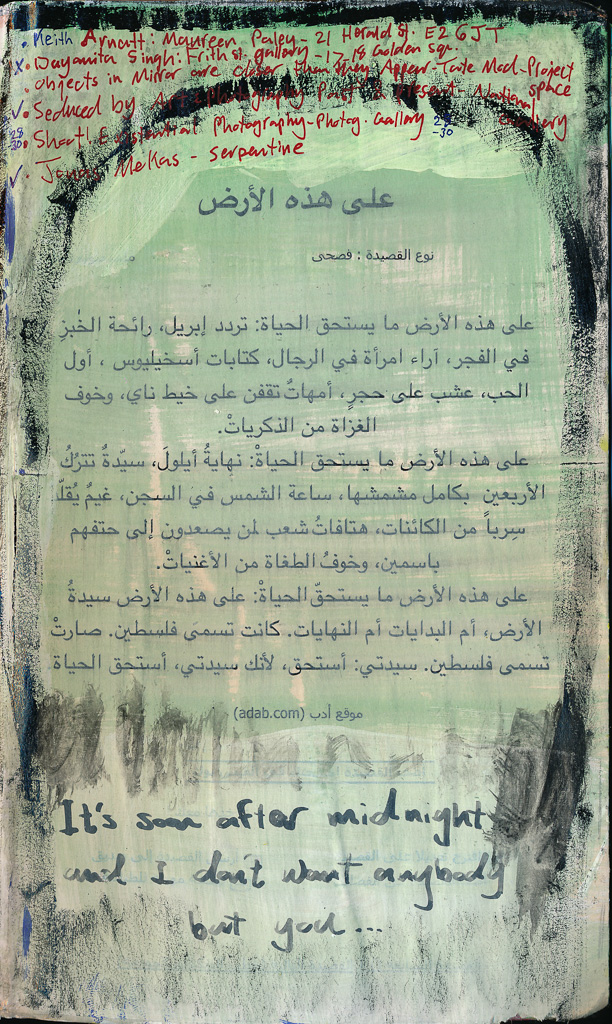 Keith Arnatt: Maureen Paley - 21 Herald St. E2 6JT
x. Dayanita Singh: Frith St. gallery - 17-18 Golden sqr.
. objects in Mirror are closer than they Appear - Tate Mod - Project space
✓. Seduced by Art: Photography Past & present - National Gallery
28-30. Existential Photography - Photog. Gallery 28-30
✓. Jonas Mekas - serpentine
على هذه الأرض
نوع القصيدة : فصحى
على هذه الأرض ما يستحق الحياة: تردد إبريل، رائحة الخُبزِ
في الفجر، آراء امرأة في الرجال، كتابات أسخيليوس ، أول
الحب، عشب على حجرٍ، أمهاتٌ تقفن على خيط ناي، وخوف
الغزاة من الذكرياتْ.
على هذه الأرض ما يستحق الحياةْ: نهايةُ أيلولَ، سيّدةٌ تترُكُ
الأربعين بكامل مشمشها، ساعة الشمس في السجن، غيمٌ يُقلّدُ
سِرباً من الكائنات، هتافاتُ شعب لمن يصعدون إلى حتفهم
باسمين، وخوفُ الطغاة من الأغنياتْ.
على هذه الأرض ما يستحقّ الحياةْ: على هذه الأرض سيدةُ
الأرض، أم البدايات أم النهايات. كانت تسمى فلسطين. صارتْ
تسمى فلسطين. سيدتي: أستحق، لأنك سيدتي، أستحق الحياة
موقع أدب (adab.com)
It's soon after midnight
and I don't want anybody
but you...